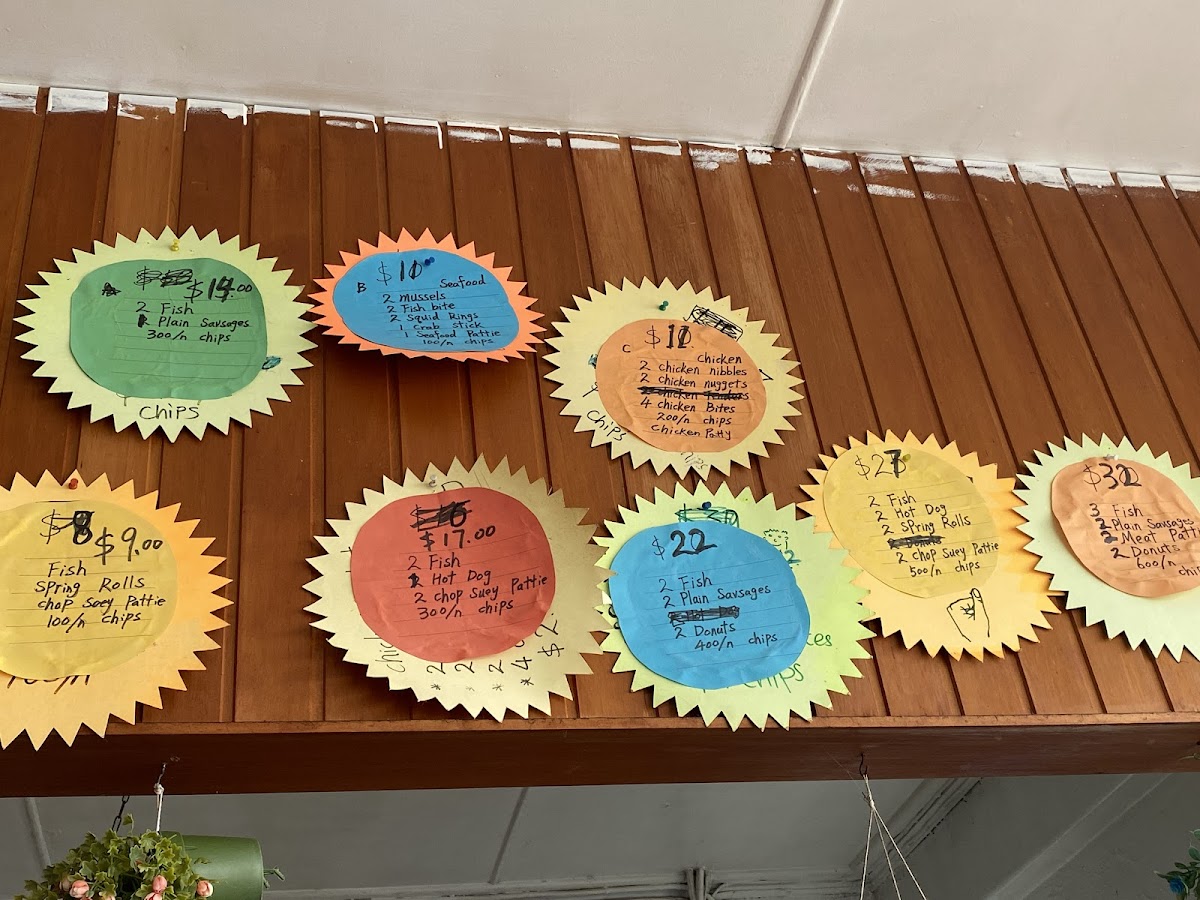 $14.00
2 Fish
Plain Savsages
300/n chips
chips
$10
B Seafood
2 mussels
2 Fish bite
2 Squid Rings
1 crab stick
1 Seafood Pattie
100/n chips
C
Chicken
2 chicken nibbles
2 chicken nuggets
4 chicken Bites
200/n chips
Chicken Patty
chips
$9.00
Fish
Spring Rolls
chop Suey Pattie
100/n chips
$17.00
2 Fish
Hot Dog
2 chop Suey Pattie
300/n chips
$22
2 Fish
2 Plain Savsages
2 Donuts
400/n chips
chips
$27
2 Fish
2 Hot Dog
2 Spring Rolls
2 chop Suey Pattie
500/n chips
$32
3 Fish
2 Plain Savsages
2 Meat Patti
2 Donuts
600/n
chi